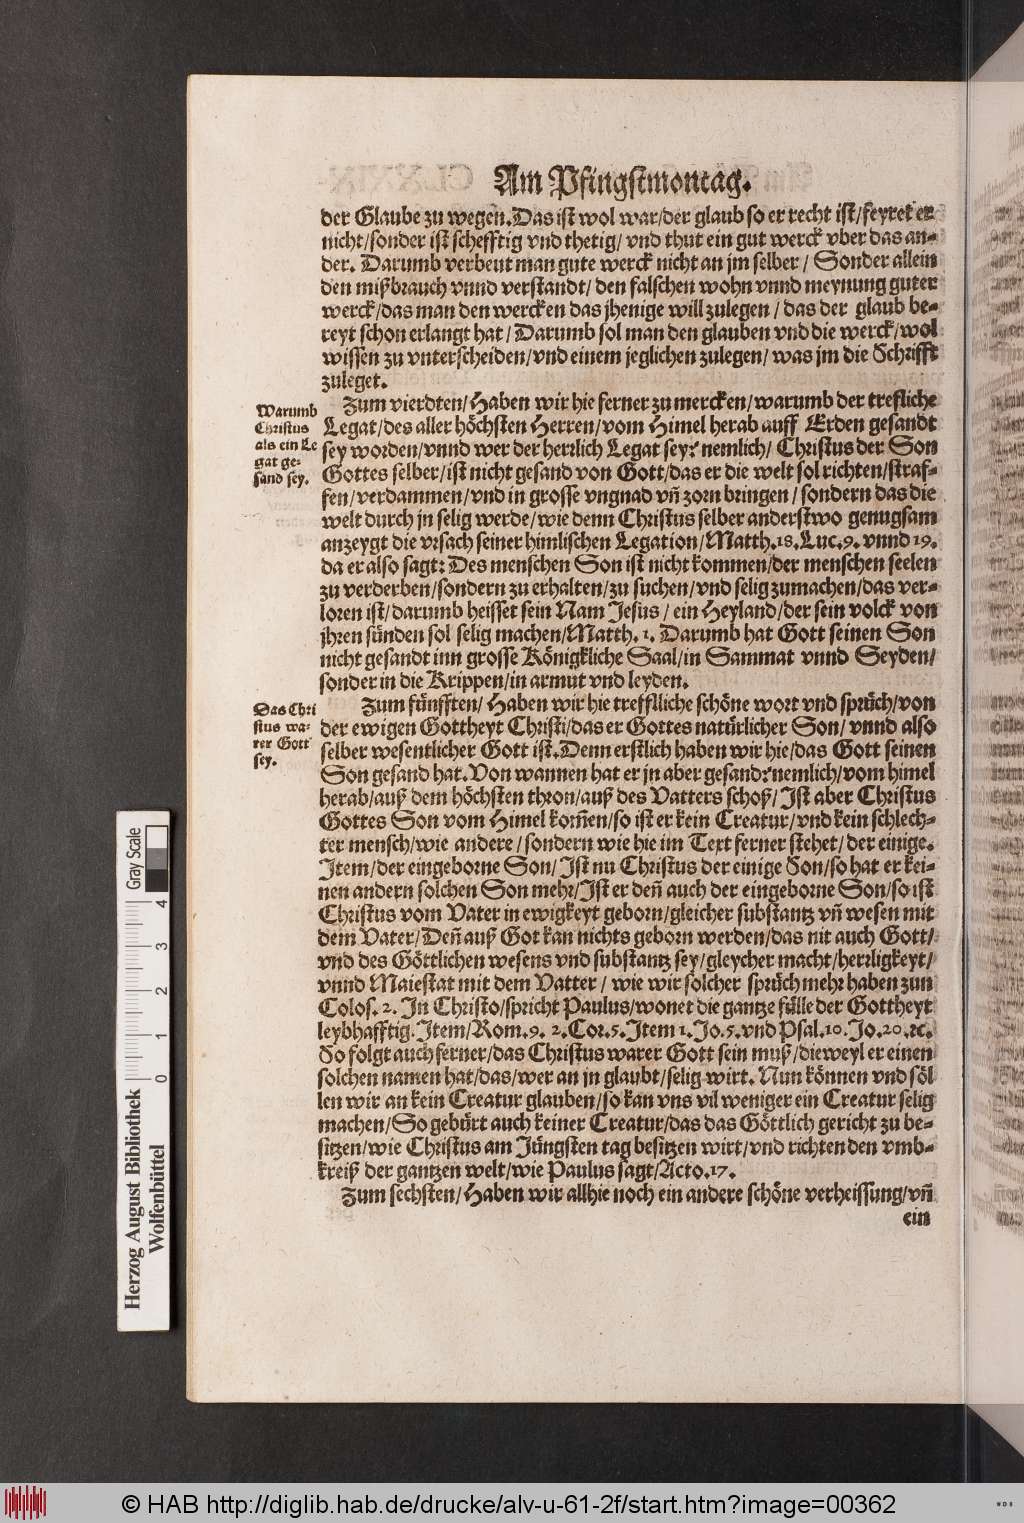 Am Pfingstmontag.
der Glaube zu wegen. Das ist wol war/der glaub so er recht ist/feyret er
nicht/sonder ist schefftig vnd thetig/ vnd thut ein gut werck vber das an-
der. Darumb verbeut man gute werck nicht an jm selber / Sonder allein
den mißbrauch vnnd verstandt/ den falschen wohn vnnd meynung guter
werck/das man den wercken das jhenige will zulegen / das der glaub be-
reyt schon erlangt hat / Darumb sol man den glauben vnd die werck/wol
wissen zu vnterscheiden/vnd einem jeglichen zulegen/ was jm die Schrifft
zuleget.
Warumb
Christus
als ein Le
gat ge-
sand sey.
Zum vierdten/ Haben wir hie ferner zu mercken/ warumb der trefliche
Legat/des aller höchsten Herren/vom Himel herab auff Erden gesandt
sey worden/vnnd wer der herrlich Legat sey? nemlich/ Christus der Son
Gottes selber/ist nicht gesand von Gott/das er die welt sol richten/straf-
fen/verdammen/vnd in grosse vngnad vñ zorn bringen / sondern das die
welt durch jn selig werde/wie denn Christus selber anderstwo genugsam
anzeygt die vrsach seiner himlischen Legation/Matth.18. Luc.9. vnnd 19.
da er also sagt: Des menschen Son ist nicht kommen/der menschen seelen
zu verderben/sondern zu erhalten/zu suchen/vnd selig zumachen/das ver-
loren ist/darumb heisset sein Nam Jesus / ein Heyland/der sein volck von
jhren sünden sol selig machen/Matth. 1. Darumb hat Gott seinen Son
nicht gesandt inn grosse Königkliche Saal/in Sammat vnnd Seyden/
sonder in die Krippen/in armut vnd leyden.
Das Chri
stus wa-
rer Gott
sey.
Zum fünfften/ Haben wir hie treffliche schöne wort vnd sprüch/von
der ewigen Gottheyt Christi/das er Gottes natürlicher Son/ vnnd also
selber wesentlicher Gott ist. Denn erstlich haben wir hie/das Gott seinen
Son gesand hat. Von wannen hat er jn aber gesand? nemlich/vom himel
herab/auß dem höchsten thron/auß des Vatters schoß/ Ist aber Christus
Gottes Son vom Himel kom̃en/so ist er kein Creatur/vnd kein schlech-
ter mensch/wie andere / sondern wie hie im Text ferner stehet/der einige.
Item/der eingeborne Son/ Ist nu Christus der einige Son/so hat er kei-
nen andern solchen Son mehr/Ist er deñ auch der eingeborne Son/so ist
Christus vom Vater in ewigkeyt geborn/gleicher substantz vñ wesen mit
dem Vater/Deñ auß Got kan nichts geborn werden/das nit auch Gott/
vnd des Göttlichen wesens vnd substantz sey/gleycher macht/herrligkeyt/
vnnd Maiestat mit dem Vatter / wie wir solcher sprüch mehr haben zun
Colos. 2. In Christo/spricht Paulus/wonet die gantze fülle der Gottheyt
leybhafftig. Item/Rom.9. 2.Cor.5. Item 1. Jo.5. vnd Psal.10. Jo.20.ꝛc.
So folgt auch ferner/das Christus warer Gott sein muß/dieweyl er einen
solchen namen hat/das/wer an jn glaubt/selig wirt. Nun können vnd söl
len wir an kein Creatur glauben/so kan vns vil weniger ein Creatur selig
machen/So gebürt auch keiner Creatur/das das Göttlich gericht zu be-
sitzen/wie Christus am Jüngsten tag besitzen wirt/vnd richten den vmb-
kreiß der gantzen welt/wie Paulus sagt/Acto.17.
Zum sechsten/ Haben wir allhie noch ein andere schöne verheissung/vñ
ein
Gray Scale
0 1 2 3 4
Herzog August Bibliothek
Wolfenbüttel
© HAB http://diglib.hab.de/drucke/alv-u-61-2f/start.htm?image=00362
WDB